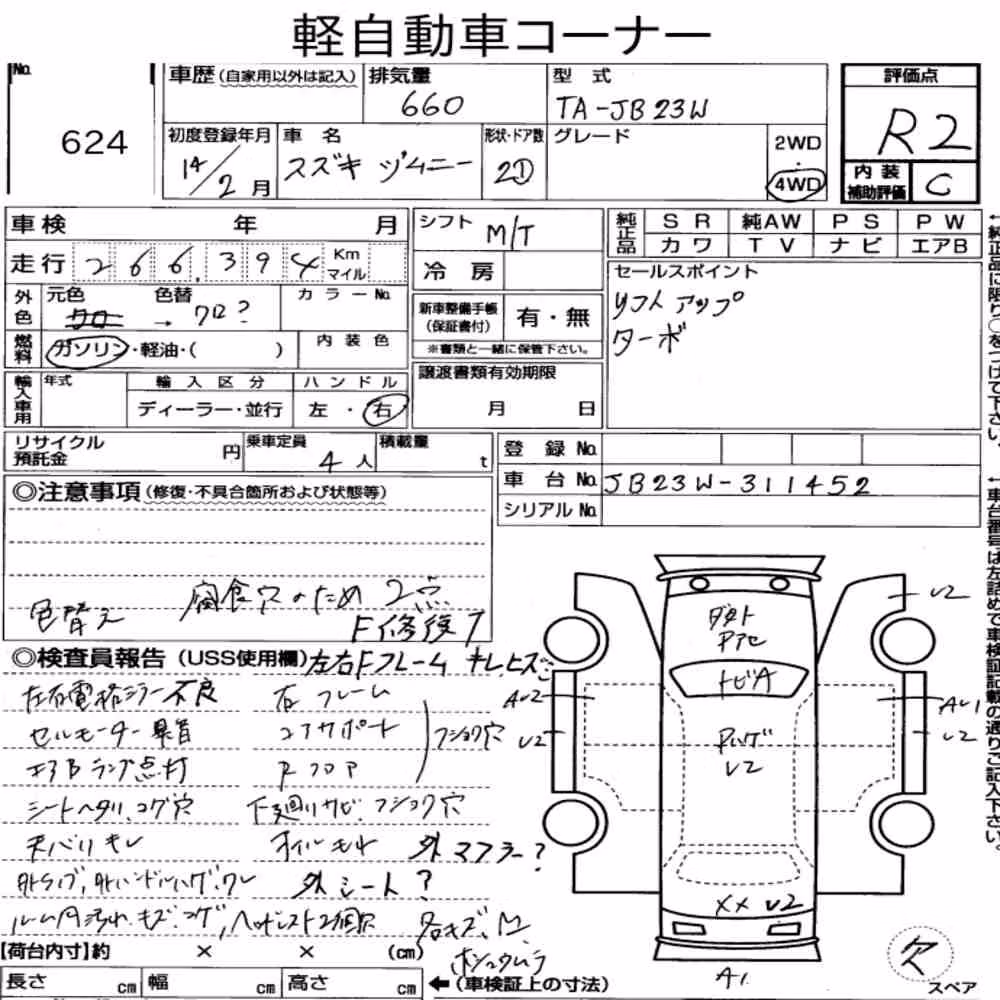 軽自動車コーナー
No. 624
車歴(自家用以外は記入) 排気量 660 型式 TA-JB23W
評価点 R2
初度登録年月 14/2月 車名 スズキ ジムニー 形状・ドア数 2D グレード 2WD・4WD
内装補助評価 C
車検 年 月
走行 266,394 Km マイル
外色 元色 クロ 色替 → クロ? カラーNo.
燃料 ガソリン・軽油・( ) 内装色
輸入車用 年式 輸入区分 ディーラー・並行 ハンドル 左・右
シフト M/T
冷房
新車整備手帳(保証書付) 有・無
※書類と一緒に保管下さい。
譲渡書類有効期限
月 日
純正品 SR 純AW PS PW
カワ TV ナビ エアB
セールスポイント
リフトアップ
ターボ
リサイクル預託金 円 乗車定員 4人 積載量 t
登録No.
車台No. JB23W-311452
シリアルNo.
◎注意事項(修復・不具合箇所および状態等)
色替え 腐食穴のため2点
F修復ア
◎検査員報告(USS使用欄)左右Fフレーム キレ、ヒズミ
左右電格ミラー不良 右フレーム
セルモーター異音 コアサポート フショク穴
エアBランプ点灯 Rフロア
シートヘタリ、コゲ穴 下廻りサビ、フショク穴
天バリキレ オイルモレ 外マフラー?
外ハンドルハゲ、ワレ 外シート?
ルーム内汚れ、キズ、コゲ、ヘッドレスト2個欠 各キズ、凹
ホシュウムラ
【荷台内寸】約 × × (cm)
長さ cm 幅 cm 高さ cm ←(車検証上の寸法)
ダクト
Pアセ
トビA
Pハゲ
U2
AU2
U2
U2
AU1
U2
XX U2
A1
欠
スペア
←純正品に限り○をつけて下さい。
←車台番号は左詰めで車検証記載の通りご記入下さい。